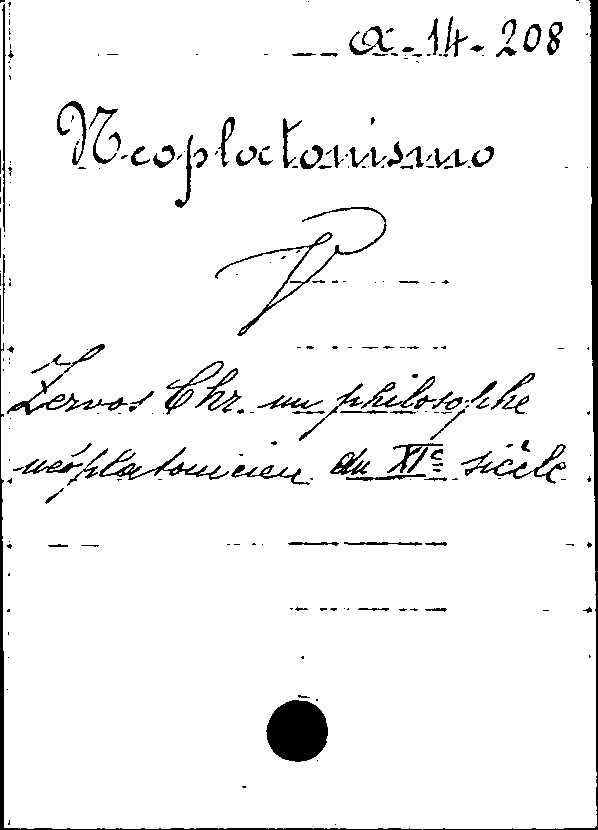 α-14-208
Neoplatonismo
V
Zervos Chr. un philosophe
néoplatonicien du XIe siècle